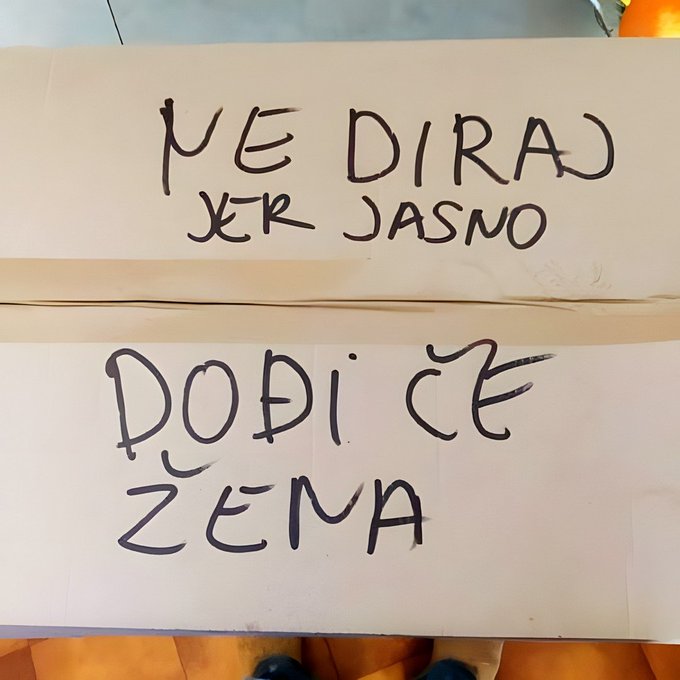 NE DIRAJ
JER JASNO
DOĐi ČE
ŽENA